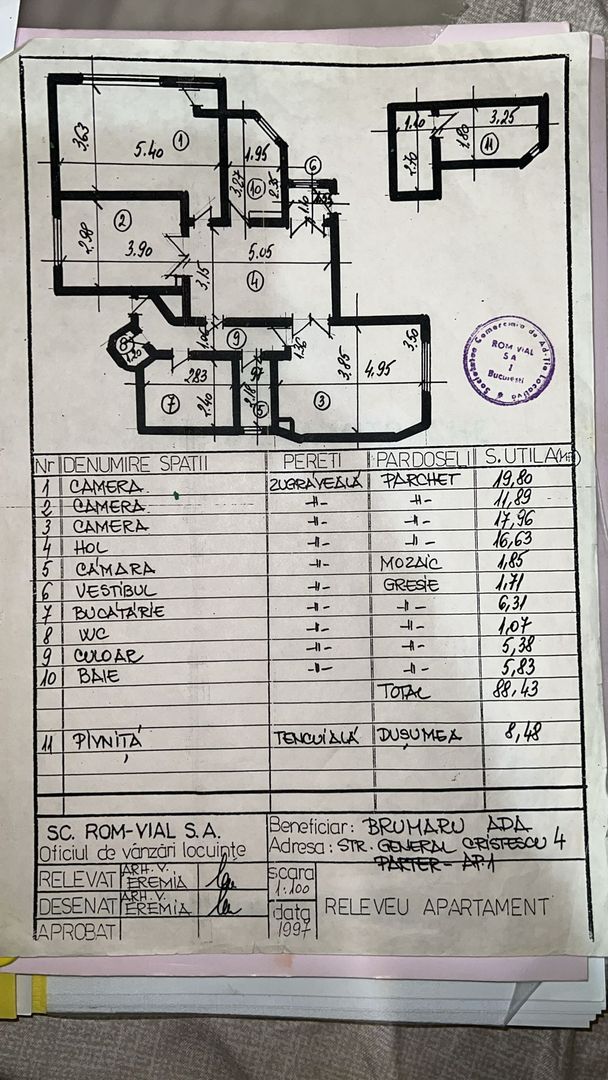 3.63
5.40
1
1.95
3.07
2.35
10
6
1.10
1.10
3.25
1.80
11
2.70
2
2.98
3.90
5.05
3.15
4
8
1.20
9
1.36
2.83
7
2.40
5
3.85
3.50
4.95
3
Societatea Comerciala de Ad-tie Locativa
ROM VIAL
SA
1
Bucuresti
Nr DENUMIRE SPATII PERETI PARDOSELI S.UTILA(M²)
1 CAMERA ZUGRAVEALĂ PARCHET 19,80
2 CAMERA -〃- -〃- 11,89
3 CAMERA -〃- -〃- 17,96
4 HOL -〃- -〃- 16,63
5 CĂMARA -〃- MOZAIC 1,85
6 VESTIBUL -〃- GRESIE 1,71
7 BUCĂTĂRIE -〃- -〃- 6,31
8 WC -〃- -〃- 1,07
9 CULOAR -〃- -〃- 5,38
10 BAIE -〃- -〃- 5,83
TOTAL 88,43
11 PIVNIȚĂ TENCUIALĂ DUȘUMEA 8,48
SC. ROM-VIAL S.A.
Oficiul de vânzări locuințe
Beneficiar: BRUMARU ADA
Adresa: STR. GENERAL CRISTESCU 4
PARTER - AP.1
RELEVAT ARH. V. EREMIA
DESENAT ARH. V. EREMIA
APROBAT
scara
1:100
data
1997
RELEVEU APARTAMENT